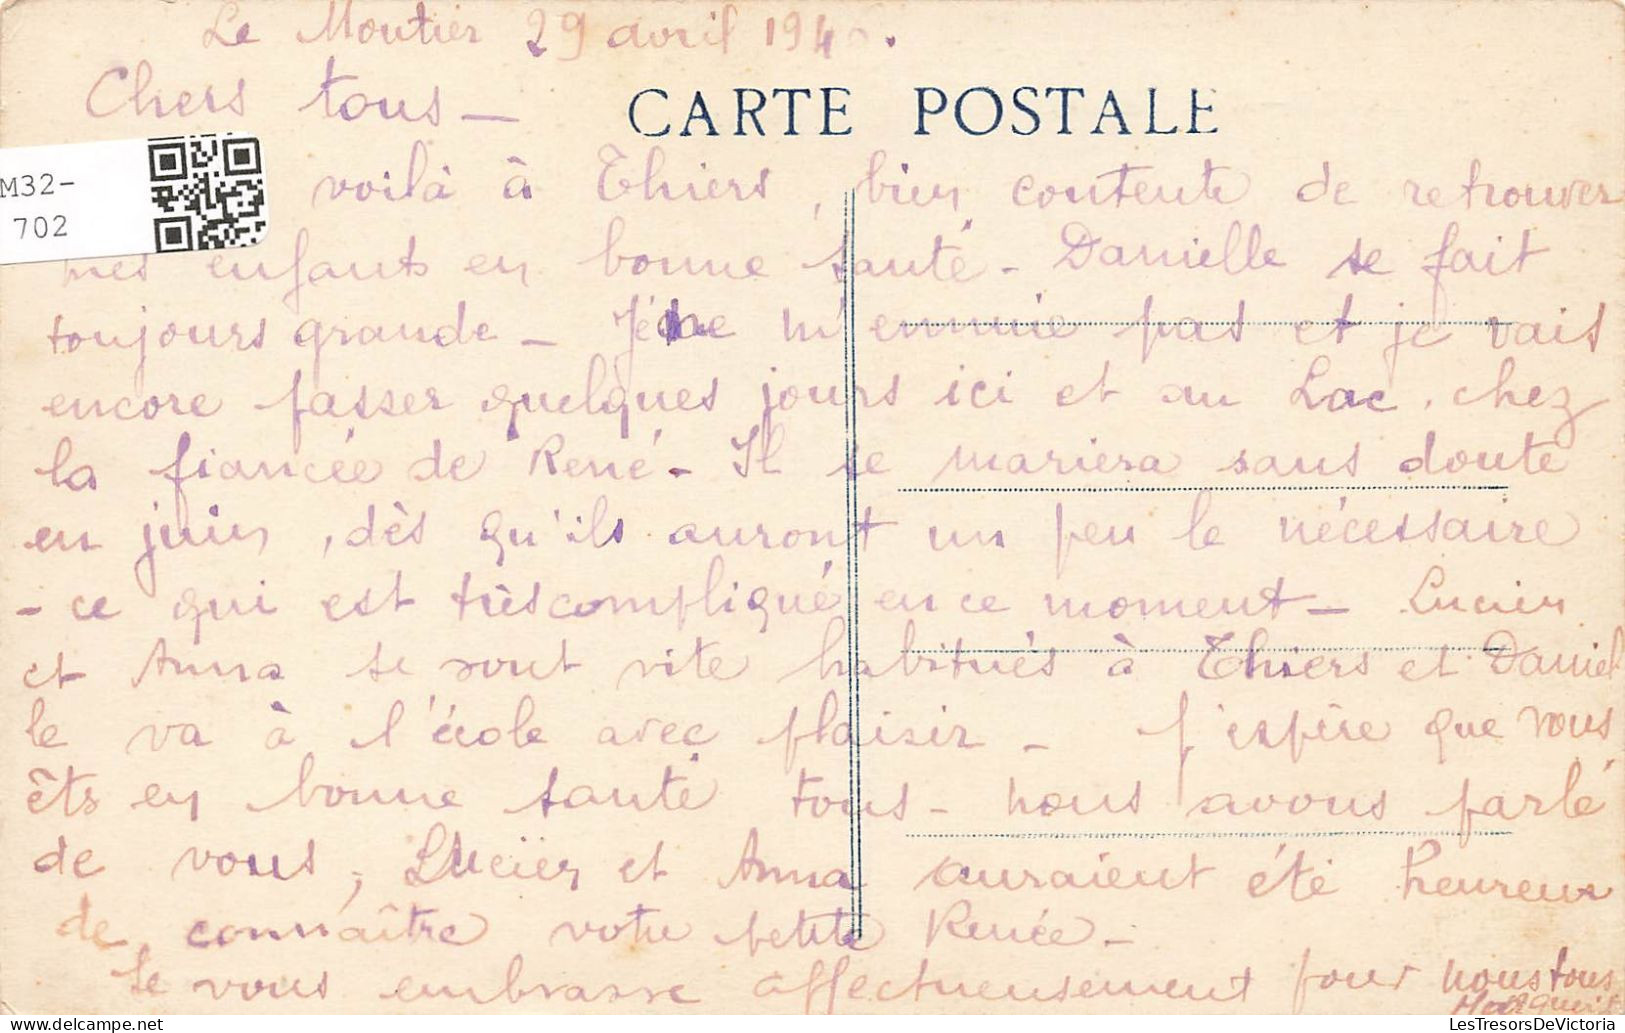 Le Moutier 29 avril 194
Chers tous -
CARTE POSTALE
M32-
702
voilà à Thiers, bien contente de retrouver
mes enfants en bonne santé - Danielle se fait
toujours grande - Je ne m'ennuie pas et je vais
encore passer quelques jours ici et au Lac, chez
la fiancée de René - Il se mariera sans doute
en juin, dès qu'ils auront un peu le nécessaire
- ce qui est très compliqué en ce moment - Lucien
et Anna se sont vite habitués à Thiers et Daniel
le va à l'école avec plaisir - J'espère que vous
êts en bonne santé tous - nous avons parlé
de vous, Lucien et Anna auraient été heureux
de connaître votre petite Renée -
Je vous embrasse affectueusement pour nous tous
LesTresorsDeVictoria